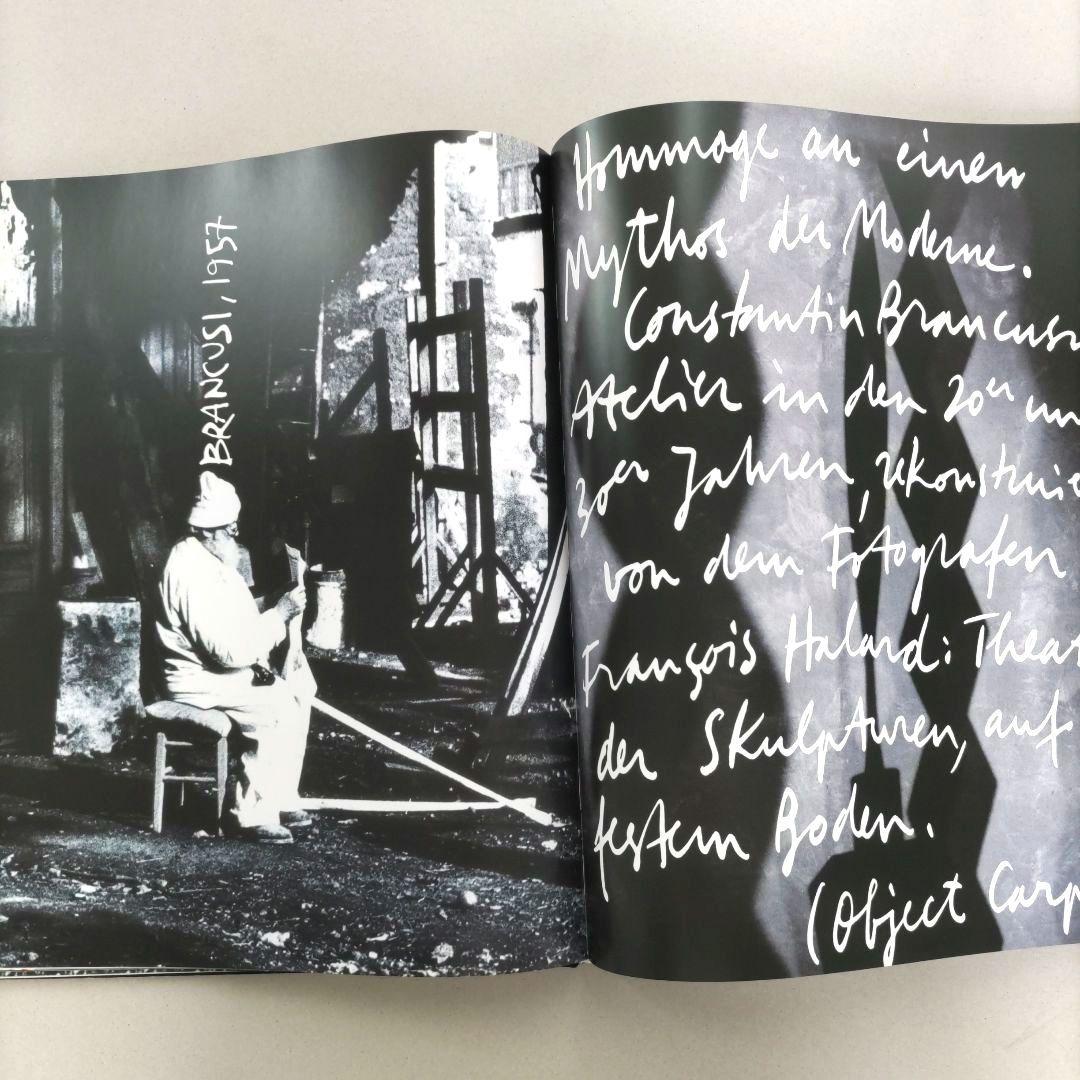 BRANCUSI, 1957
Hommage an einen
Mythos der Moderne.
Constantin Brancus
Atelier in den 20er un
30er Jahren, rekonstruie
von dem Fotografen
François Halard: Theat
der Skulpturen, auf
festem Boden.
(Object Carp